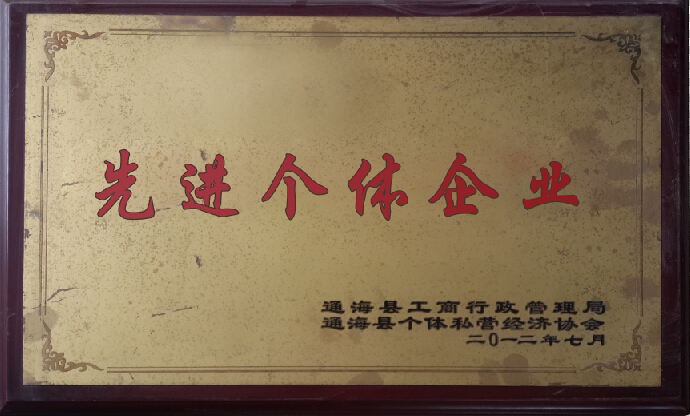 先进个体企业
通海县工商行政管理局
通海县个体私营经济协会
二0一二年七月